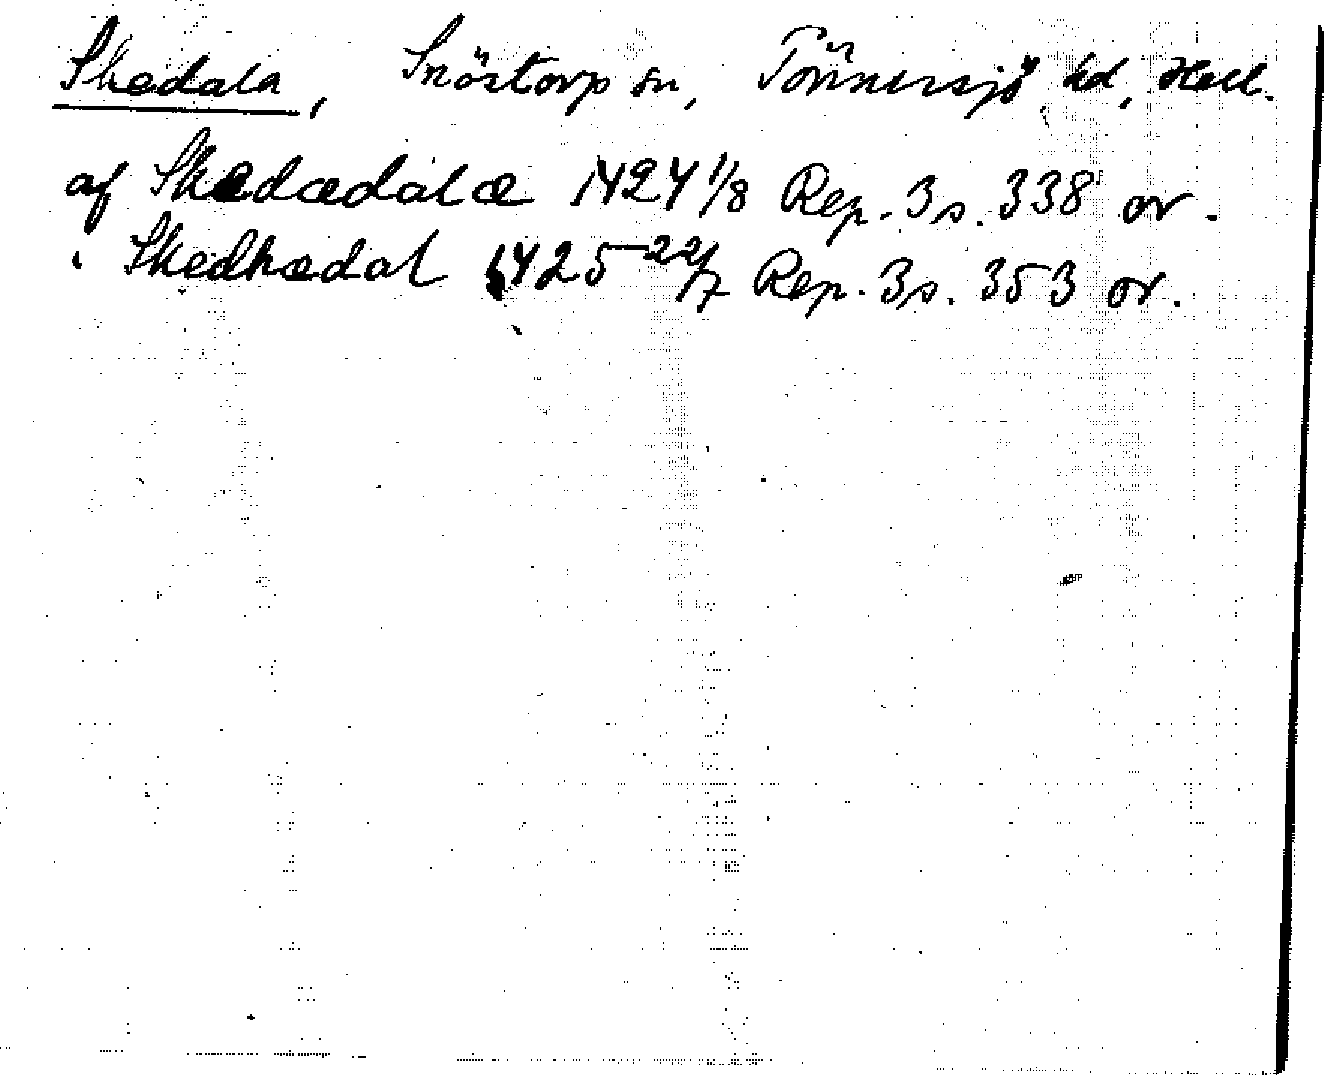 Skedala, Snöstorp sn, Tönnersjö hd, Hall.
af Skedædalæ 1424 1/8 Rep. 3 s. 338 or.
i Skedhædal 1425 22/7 Rep. 3 s. 353 or.